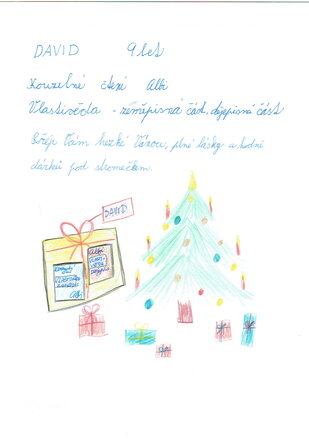 DAVID 9 let
Kouzelné čtení Albi
Vlastivěda - zeměpisná část, dějepisná část
Přeji Vám hezké Vánoce, plné lásky a hodně
dárků pod stromečkem.
DAVID
Albi
Albi